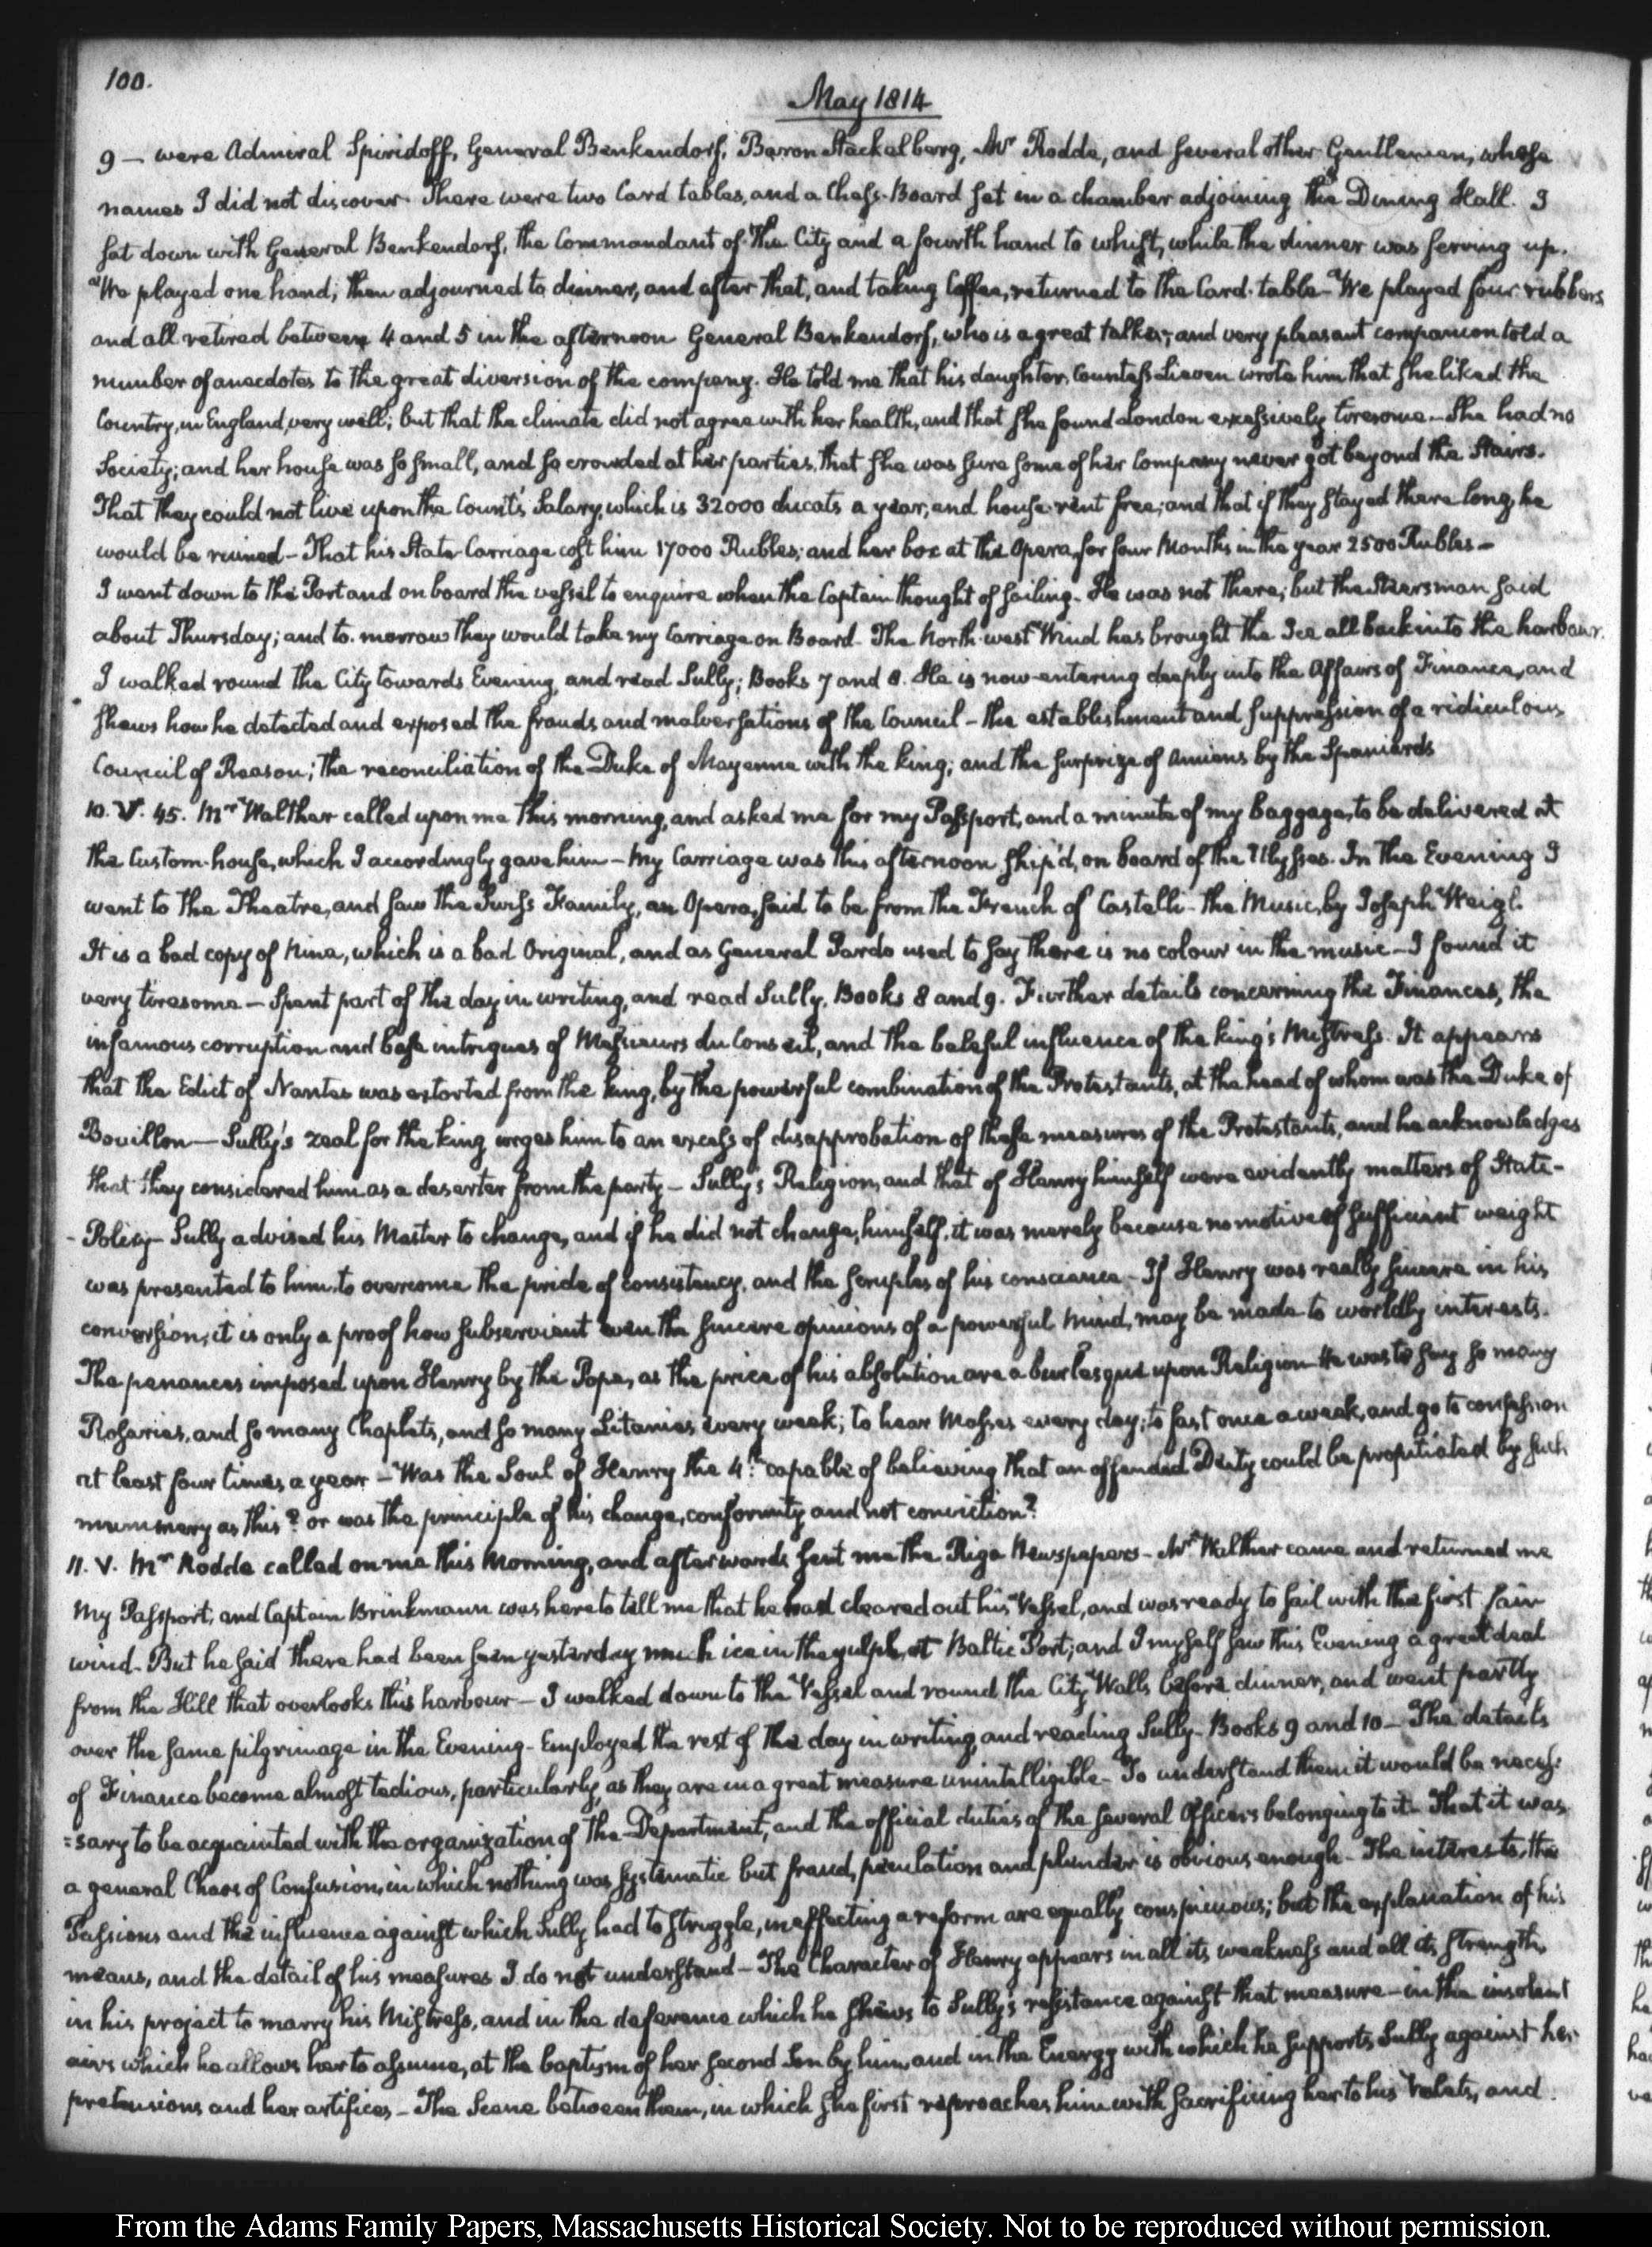 100.
May 1814
9 — were Admiral Spiridoff, General Benkendorf, Baron Stackelberg, Mr Rodde, and several other Gentlemen, whose
names I did not discover. There were two Card tables, and a Chess-Board set in a chamber adjoining the Dining Hall. I
sat down with General Benkendorf, the Commandant of the City and a fourth hand to whist, while the dinner was serving up.
We played one hand; then adjourned to dinner, and after that, and taking Coffee, returned to the Card-table — We played four rubbers
and all retired between 4 and 5 in the afternoon General Benkendorf, who is a great talker, and very pleasant companion told a
number of anecdotes to the great diversion of the company. He told me that his daughter, Countess Lieven wrote him that she liked the
Country, in England, very well; but that the climate did not agree with her health, and that she found London excessively tiresome — She had no
Society; and her house was so small, and so crowded at her parties, that she was sure some of her Company never got beyond the Stairs.
That they could not live upon the Count's Salary, which is 32000 ducats a year, and house-rent free; and that if they stayed there long, he
would be ruined — That his State-Carriage cost him 17000 Rubles; and her box at the Opera, for four Months in the year 2500 Rubles —
I went down to the Port and on board the vessel to enquire when the Captain thought of sailing. He was not there; but the Steersman said
about Thursday; and to-morrow they would take my Carriage on Board. The North-west Wind has brought the Ice all back into the harbour.
I walked round the City towards Evening, and read Sully; Books 7 and 8. He is now entering deeply into the Affairs of Finance, and
shews how he detected and exposed the frauds and malversations of the Council — the establishment and suppression of a ridiculous
Council of Reason; the reconciliation of the Duke of Mayenne with the king; and the surprize of Amiens by the Spaniards
10. V. 45. Mr Walther called upon me this morning, and asked me for my Passport, and a minute of my baggage, to be delivered at
the Custom-house, which I accordingly gave him — My Carriage was this afternoon ship'd, on board of the Ulysses. In the Evening I
went to the Theatre, and saw the Swiss Family, an Opera, said to be from the French of Castelli — the Music, by Joseph Weigl.
It is a bad copy of Nina, which is a bad Original, and as General Pardo used to say there is no colour in the music — I found it
very tiresome — Spent part of the day in writing, and read Sully. Books 8 and 9. Further details concerning the Finances, the
infamous corruption and base intrigues of Messieurs du Conseil, and the baleful influence of the king's Mistress. It appears
that the Edict of Nantes was extorted from the king, by the powerful combination of the Protestants, at the head of whom was the Duke of
Bouillon — Sully's zeal for the king urges him to an excess of disapprobation of these measures of the Protestants, and he acknowledges
that they considered him as a deserter from the party — Sully's Religion, and that of Henry himself were evidently matters of State-
-Policy — Sully advised his Master to change, and if he did not change, himself, it was merely because no motive of sufficient weight
was presented to him, to overcome the pride of consistency, and the scruples of his conscience — If Henry was really sincere in his
conversion, it is only a proof how subservient even the sincere opinions of a powerful mind, may be made to worldly interests.
The penances imposed upon Henry by the Pope, as the price of his absolution are a burlesque upon Religion — He was to say so many
Rosaries, and so many Chaplets, and so many Litanies every week; to hear Masses every day; to fast once a week, and go to confession
at least four times a year — Was the Soul of Henry the 4th capable of believing that an offended Deity could be propitiated by such
mummery as this? or was the principle of his change, conformity and not conviction?
11. V. Mr Rodde called on me this Morning, and afterwards sent me the Riga Newspapers — Mr Walther came and returned me
my Passport, and Captain Brinkmann was here to tell me that he had cleared out his Vessel, and was ready to sail with the first fair
wind. But he said there had been seen yesterday much ice in the gulph, at Baltic Port; and I myself saw this Evening a great deal
from the Hill that overlooks this harbour — I walked down to the Vessel and round the City Walls before dinner, and went partly
over the same pilgrimage in the Evening — Employed the rest of the day in writing, and reading Sully — Books 9 and 10 — The details
of Finance become almost tedious, particularly, as they are in a great measure unintelligible — To understand them it would be neces-
=sary to be acquainted with the organization of the Department, and the official duties of the several Officers belonging to it — That it was
a general Chaos of Confusion, in which nothing was systematic but fraud, peculation and plunder is obvious enough — The interests, the
Passions and the influence against which Sully had to struggle, in effecting a reform are equally conspicuous; but the explanation of his
means, and the detail of his measures I do not understand — The Character of Henry appears in all its weakness and all its strength,
in his project to marry his Mistress, and in the deference which he shews to Sully's resistance against that measure — in the insolent
airs which he allows her to assume, at the baptism of her second Son by him, and in the Energy with which he supports Sully against her
pretensions and her artifices — The Scene between them, in which she first reproaches him with sacrificing her to his Valets, and
From the Adams Family Papers, Massachusetts Historical Society. Not to be reproduced without permission.